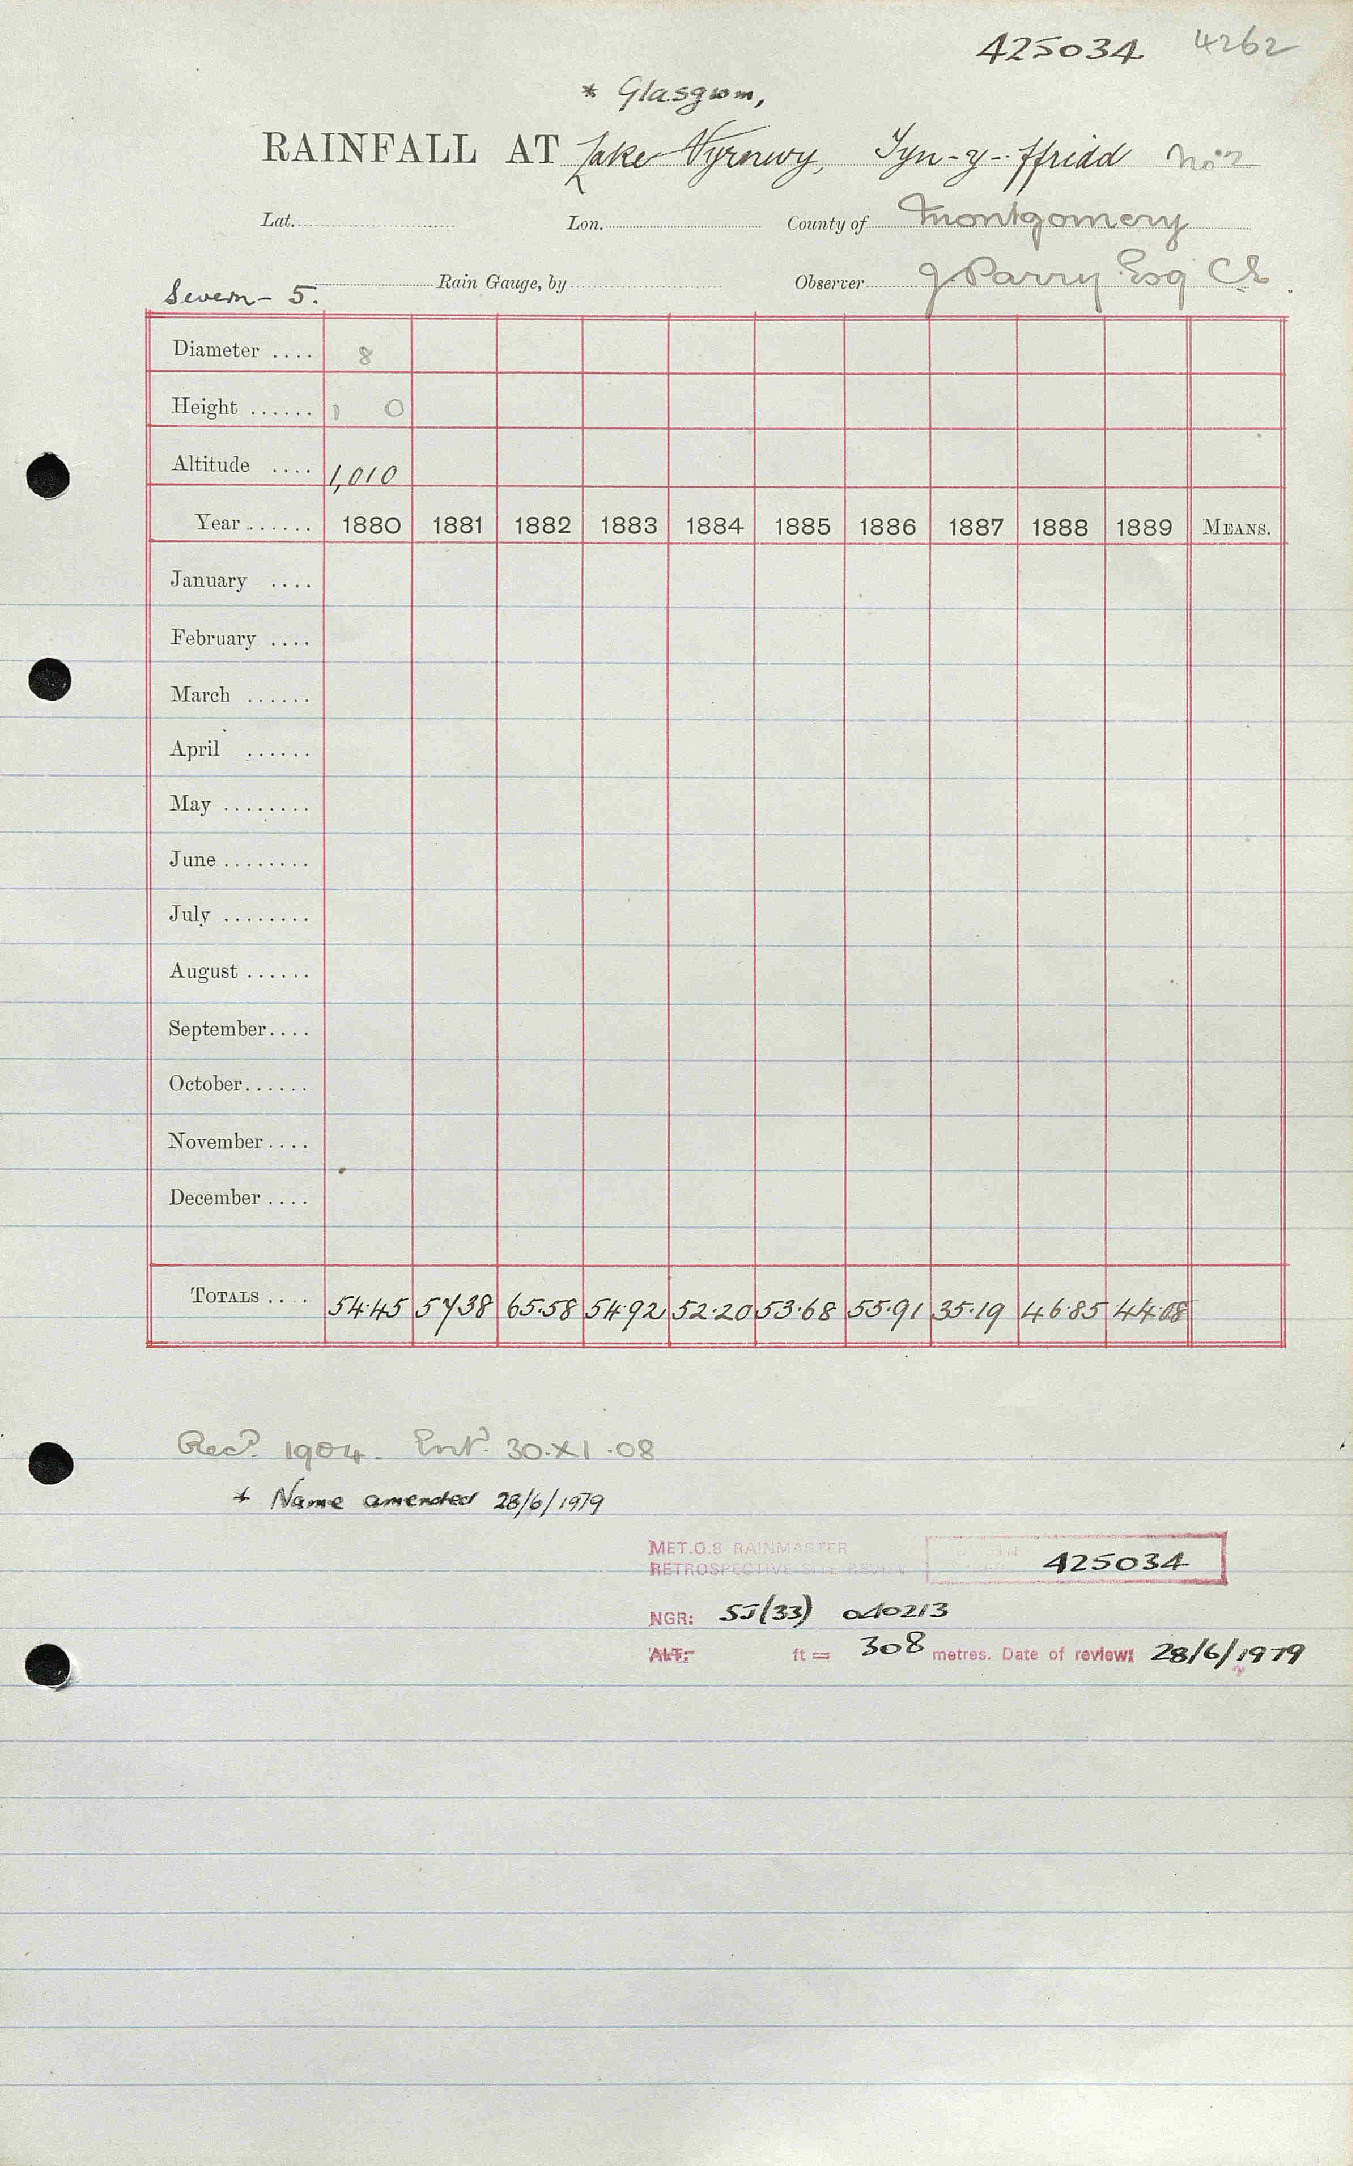 425034 4262
* Glasgwm,
RAINFALL AT Lake Vyrnwy, Tyn-y-ffridd No 2
Lat. Lon. County of Montgomery
Severn - 5. Rain Gauge, by Observer J Parry Esq CE.
Diameter .... 8
Height ...... 1 0
Altitude .... 1,010
Year ...... 1880 1881 1882 1883 1884 1885 1886 1887 1888 1889 MEANS.
January ....
February ....
March ......
April ......
May ........
June ........
July ........
August ......
September....
October......
November....
December....
TOTALS .... 54.45 57.38 65.58 54.92 52.20 53.68 55.91 35.19 46.85 44.08
Recd. 1904. Entd. 30.XI.08
* Name amended 28/6/1979
MET.O.8 RAINMASTER
RETROSPECTIVE SITE REVIEW 425034
NGR: SJ(33) 040213
ALT: ft = 308 metres. Date of review: 28/6/1979